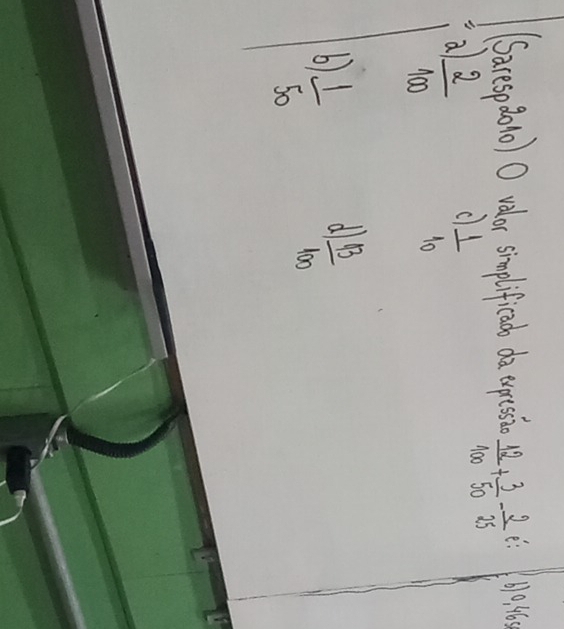 (Saresp2010) O valor simplificado da expressão 12/100 + 3/50 - 2/25 é:
a) 2/100
b) 1/50
c) 1/10
d) 13/100
b) 0,46